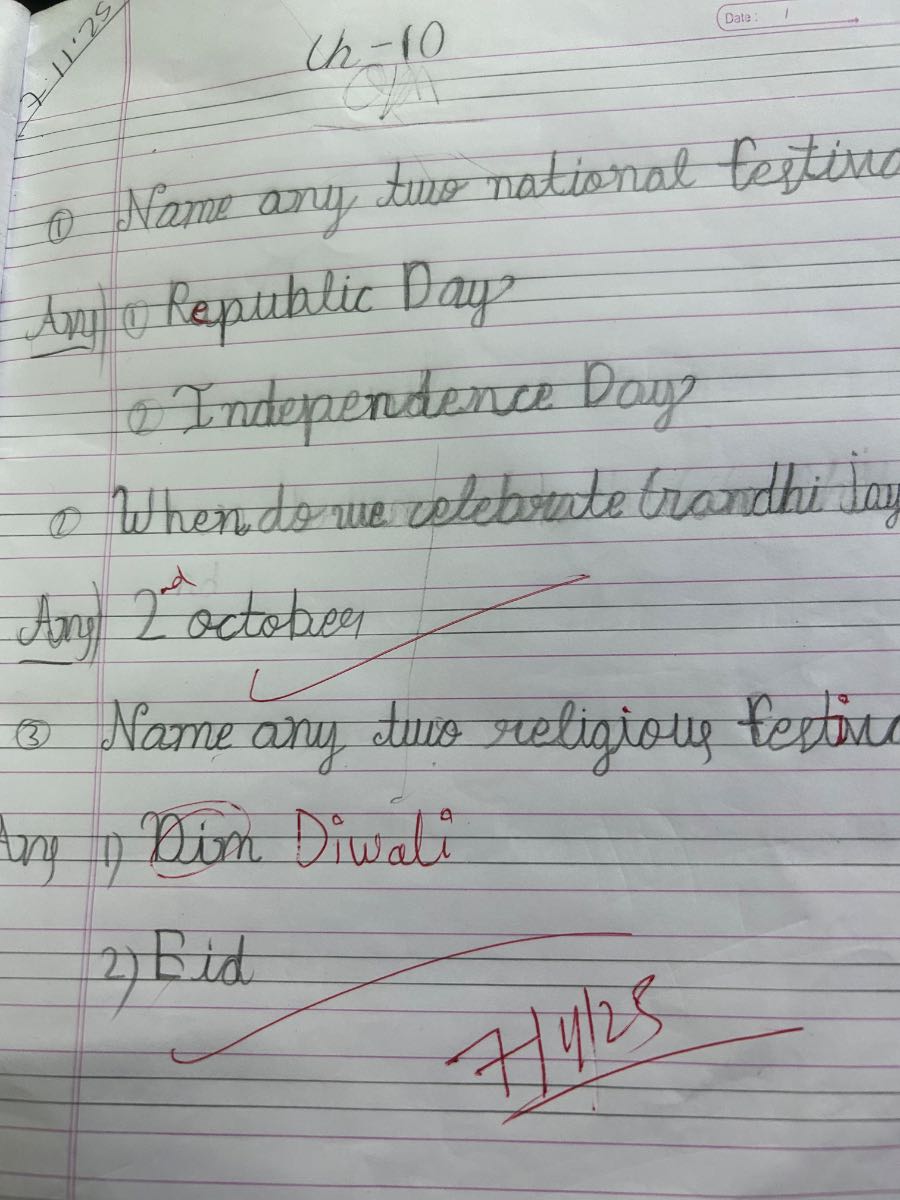 Date: 1
7.11.25
Ch-10
① Name any two national festiva
Ans) ① Republic Day
② Independence Day
② When do we celebrate Gandhi Jay
Ans) 2nd october
③ Name any two religious festiva
Ans 1) Dim Diwali
2) Eid
7/11/25